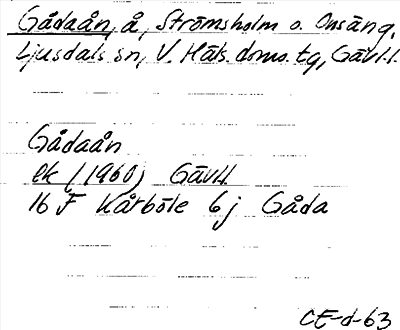 Gådaån, å, Strömsholm o. Onsäng,
Ljusdals sn, V. Häls. doms. tg, Gävl.l.
Gådaån
ek (1960) Gävl.l.
16 F Kårböle 6j Gåda
CE-d-63